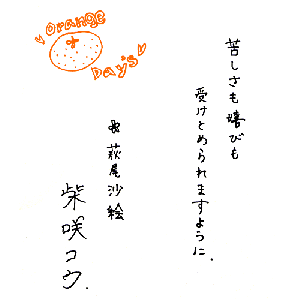 orange
Days
苦しさも嬉びも
受けとめられますように.
萩尾沙絵
柴咲コウ.